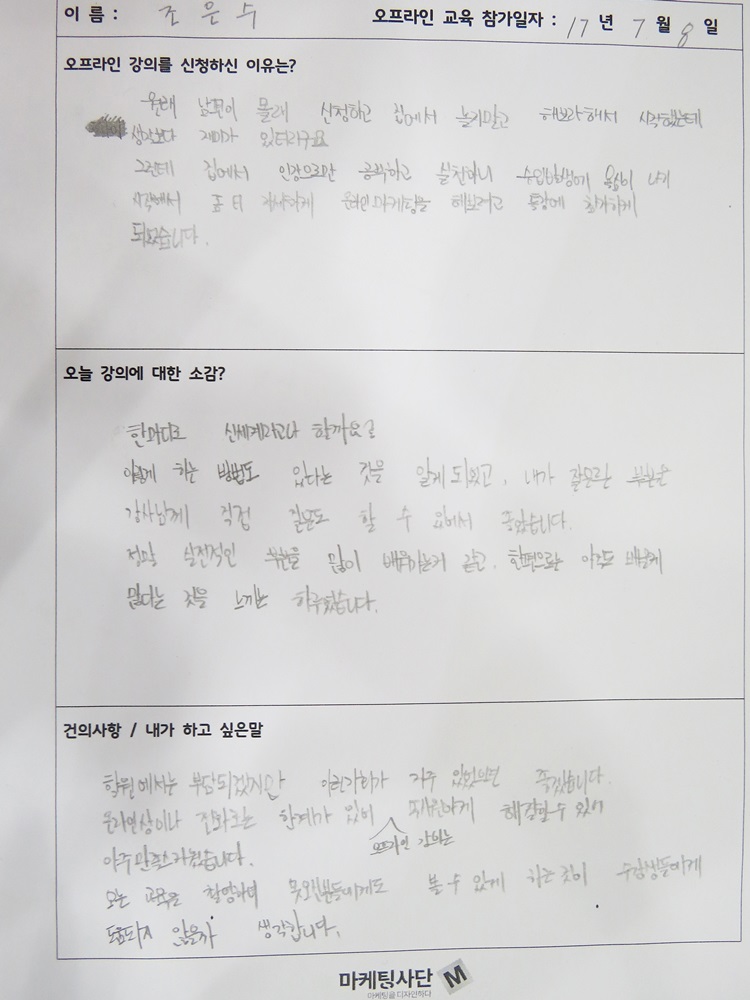 이 름 : 조 은 수 오프라인 교육 참가일자 : 17 년 7 월 8 일
오프라인 강의를 신청하신 이유는?
원래 남편이 몰래 신청하고 집에서 놀지말고 해보라해서 시작했는데
생각보다 재미가 있더라구요
그런데 집에서 인강으로만 공부하고 실천하니 수입발생에 욕심이 나기
시작해서 좀 더 온라인마케팅을 해보려고 참가하게
되었습니다.
오늘 강의에 대한 소감?
한마디로 신세계라고나 할까요?
이렇게 하는 방법도 있다는 것을 알게되었고, 내가 잘모르는 부분은
강사님께 직접 질문도 할 수 있어서 좋았습니다.
정말 실전적인 부분을 많이 배우가는거 같고, 한편으로는 아직도 배울게
많다는 것을 느끼는 하루였습니다.
건의사항 / 내가 하고 싶은말
학원에서는 부담되겠지만 이런기회가 자주 있었으면 좋겠습니다.
온라인상이나 전화로는 한계가 있어 해결할수 있어
오프라인 강의는
아주만족스러웠습니다.
모든 교육을 촬영하여 못오신분들에게도 볼 수 있게 하는것이 수강생들에게
도움되지 않을까 생각합니다.
마케팅사단 M
마케팅을 디자인하다